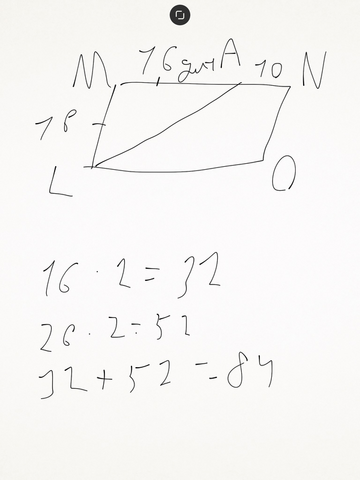 M 16 дм A 10 N
18
L O
16 · 2 = 32
26 · 2 = 52
32 + 52 = 84